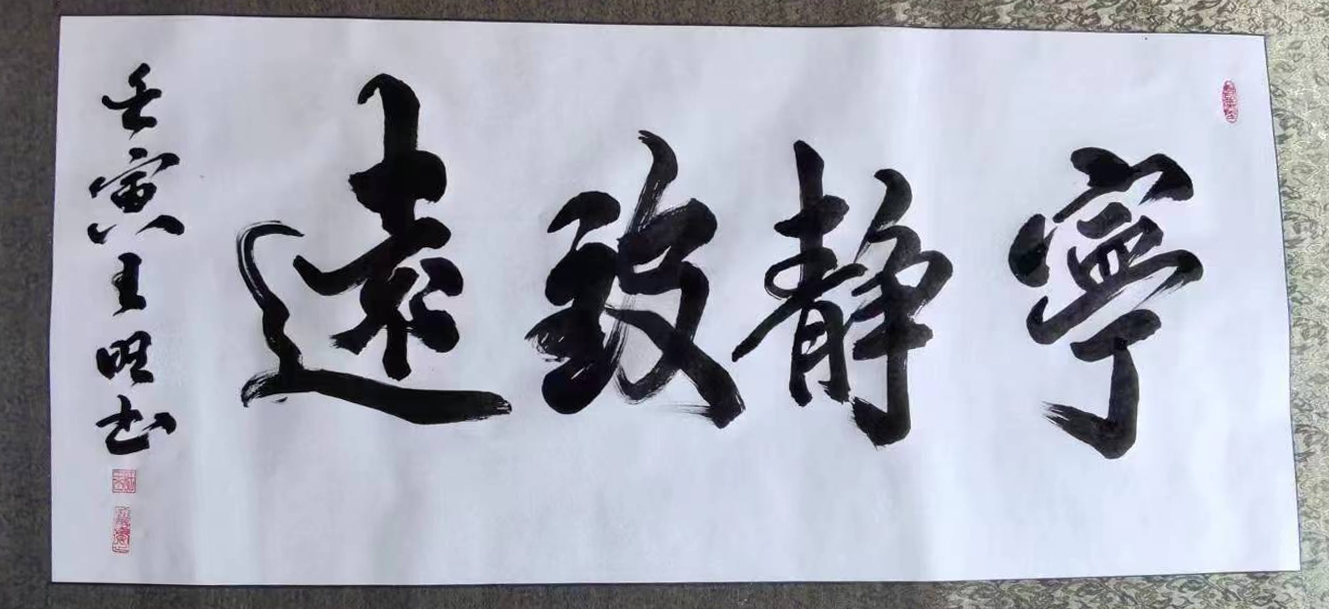 寧静致遠
壬寅王明书